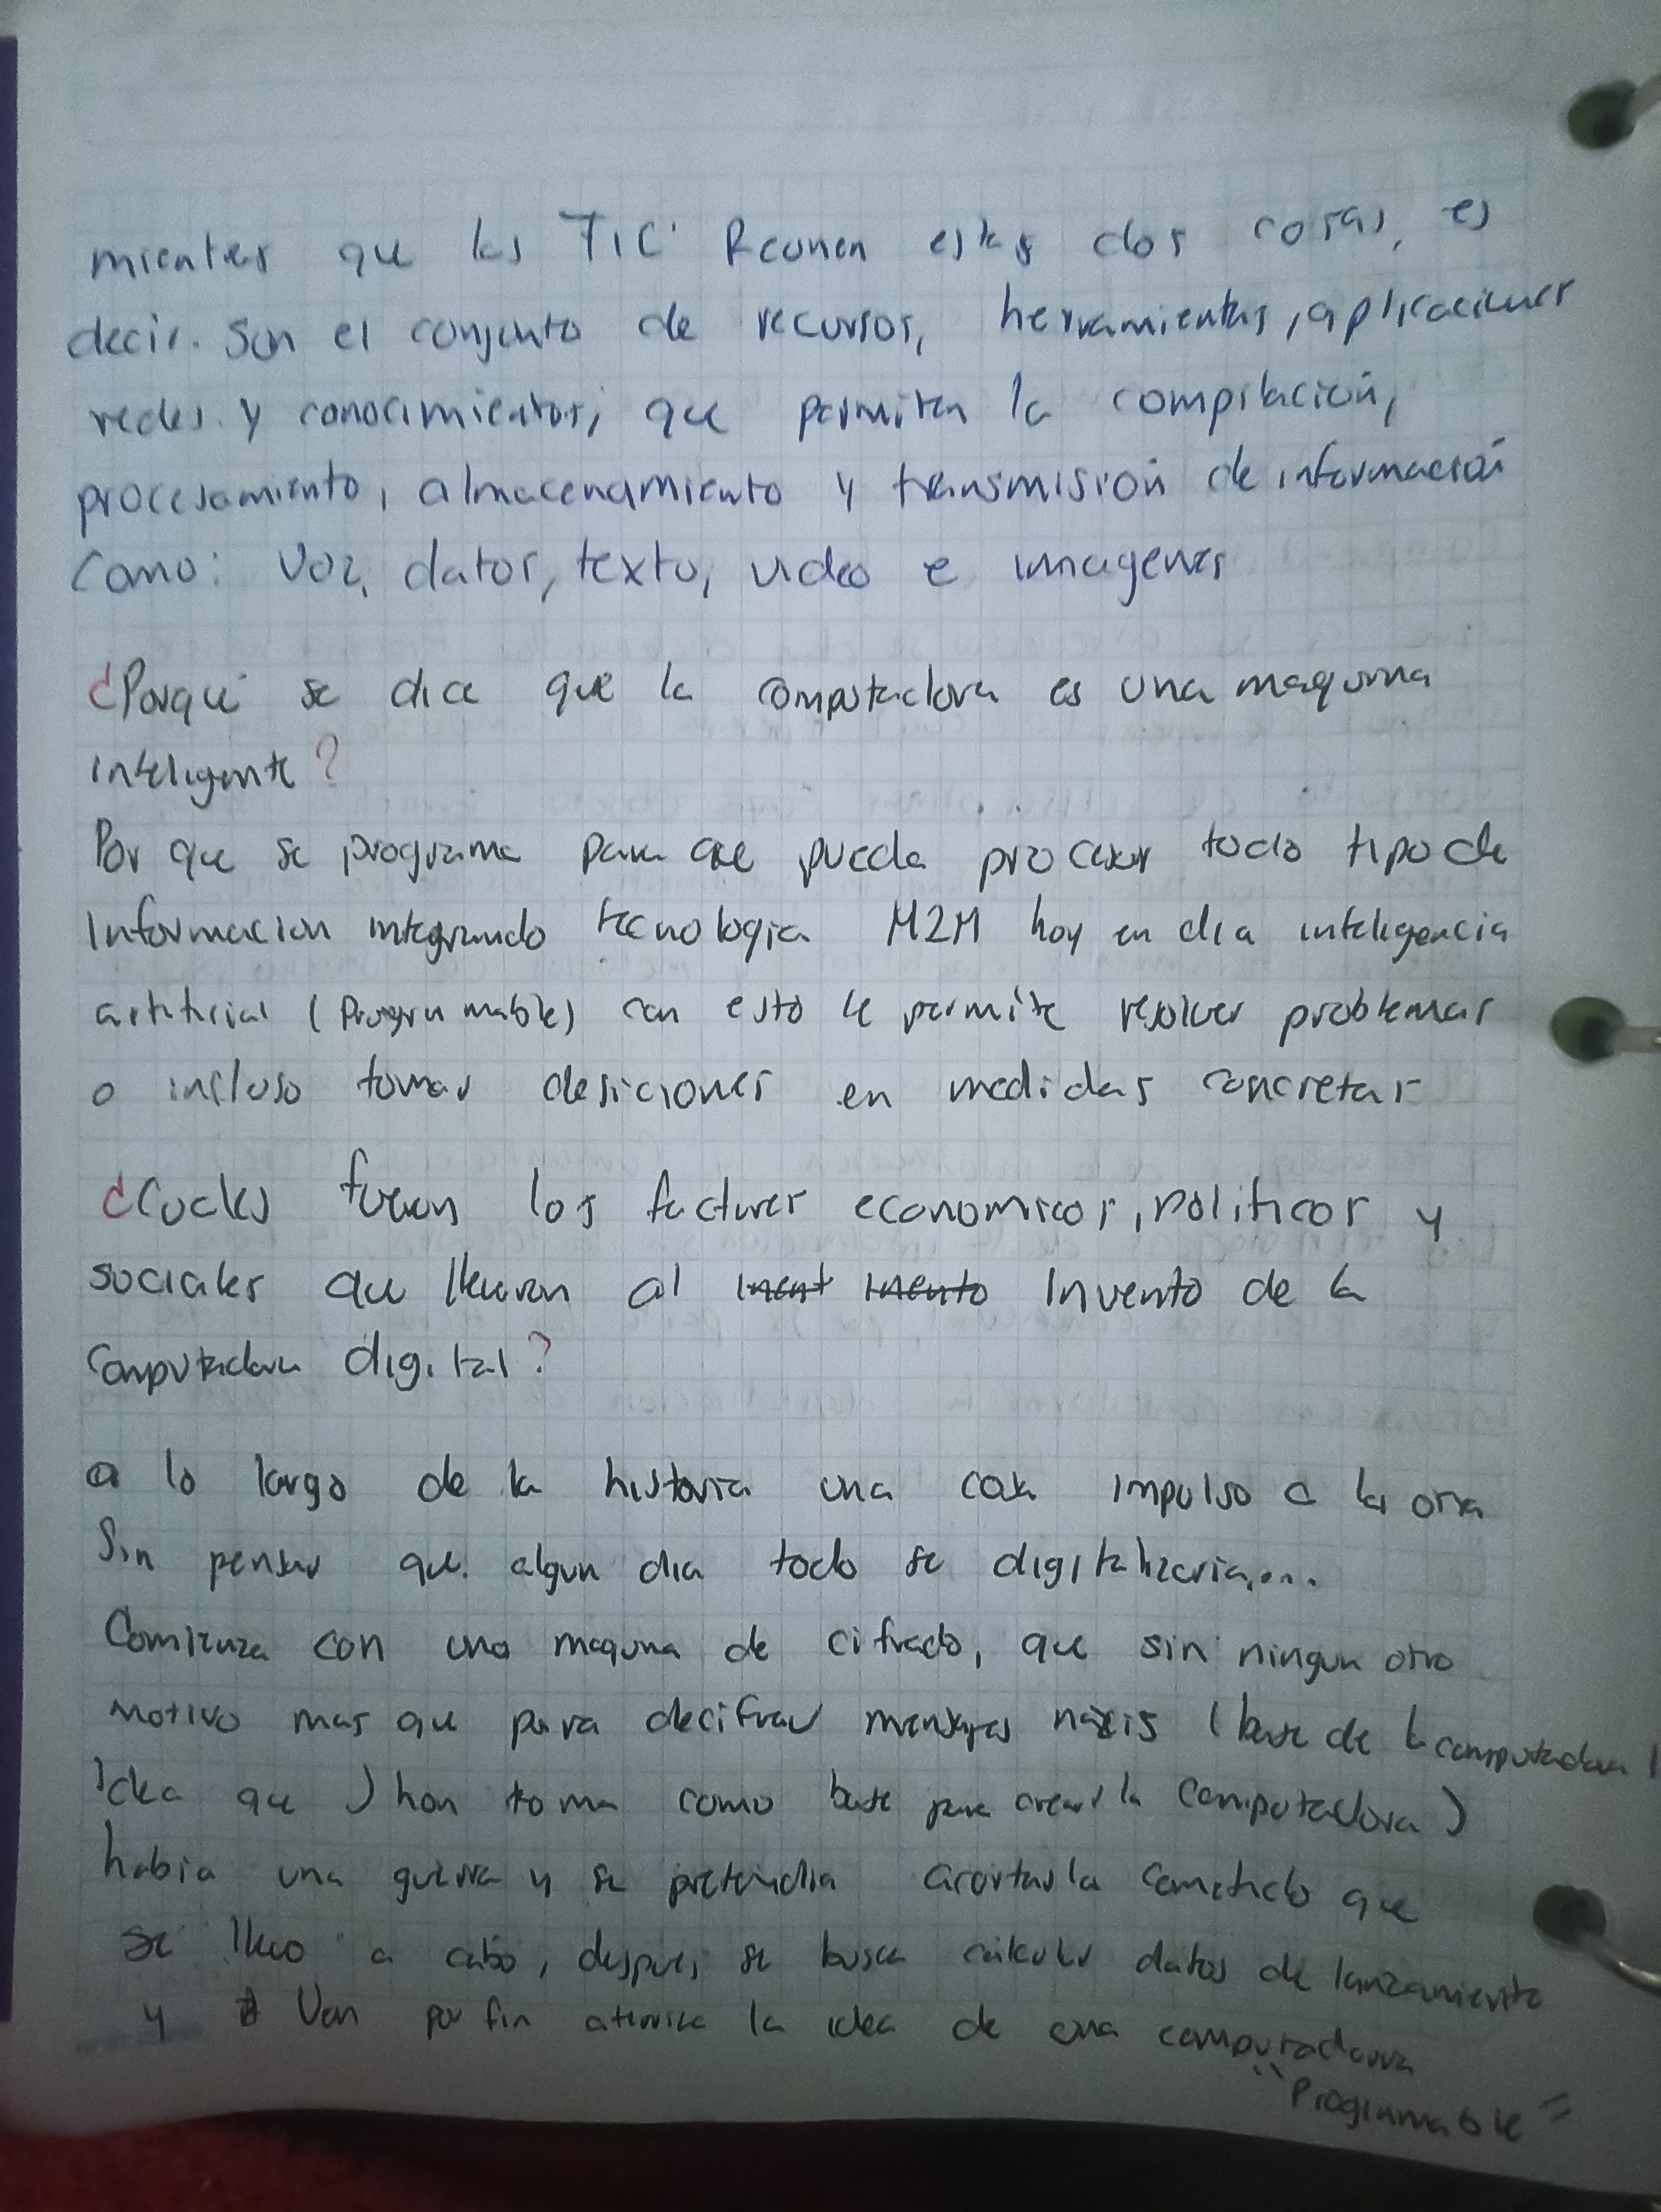 mientras que las TIC Reunen estas dos cosas, es
decir. Son el conjunto de recursos, herramientas, aplicaciones
redes y conocimientos; que permiten la compilación,
procesamiento, almacenamiento y transmisión de información
como: Voz, datos, texto, video e imagenes
¿Porqué se dice que la computadora es una maquina
inteligente?
Por que se programa para que pueda procesar todo tipo de
Informacion integrando tecnologia M2M hoy en dia inteligencia
artificial (Programable) con esto le permite resolver problemas
o incluso tomar desiciones en medidas concretas
¿Cuales fueron los factores economicos, politicos y
sociales que llevaron al Invento de la
computadora digital?
a lo largo de la historia una cosa impulso a la otra
Sin pensar que algun dia todo se digitalizaria....
Comienza con una maquina de cifrado, que sin ningun otro
motivo mas que para decifrar mensajes nazis (base de la computadora)
Idea que Jhon toma como base para crear la computadora)
habia una guerra y se pretendia acortarla cometido que
se llevo a cabo, despues se busca calcular datos de lanzamiento
y Von por fin aterriza la idea de una computadora
"Programable"